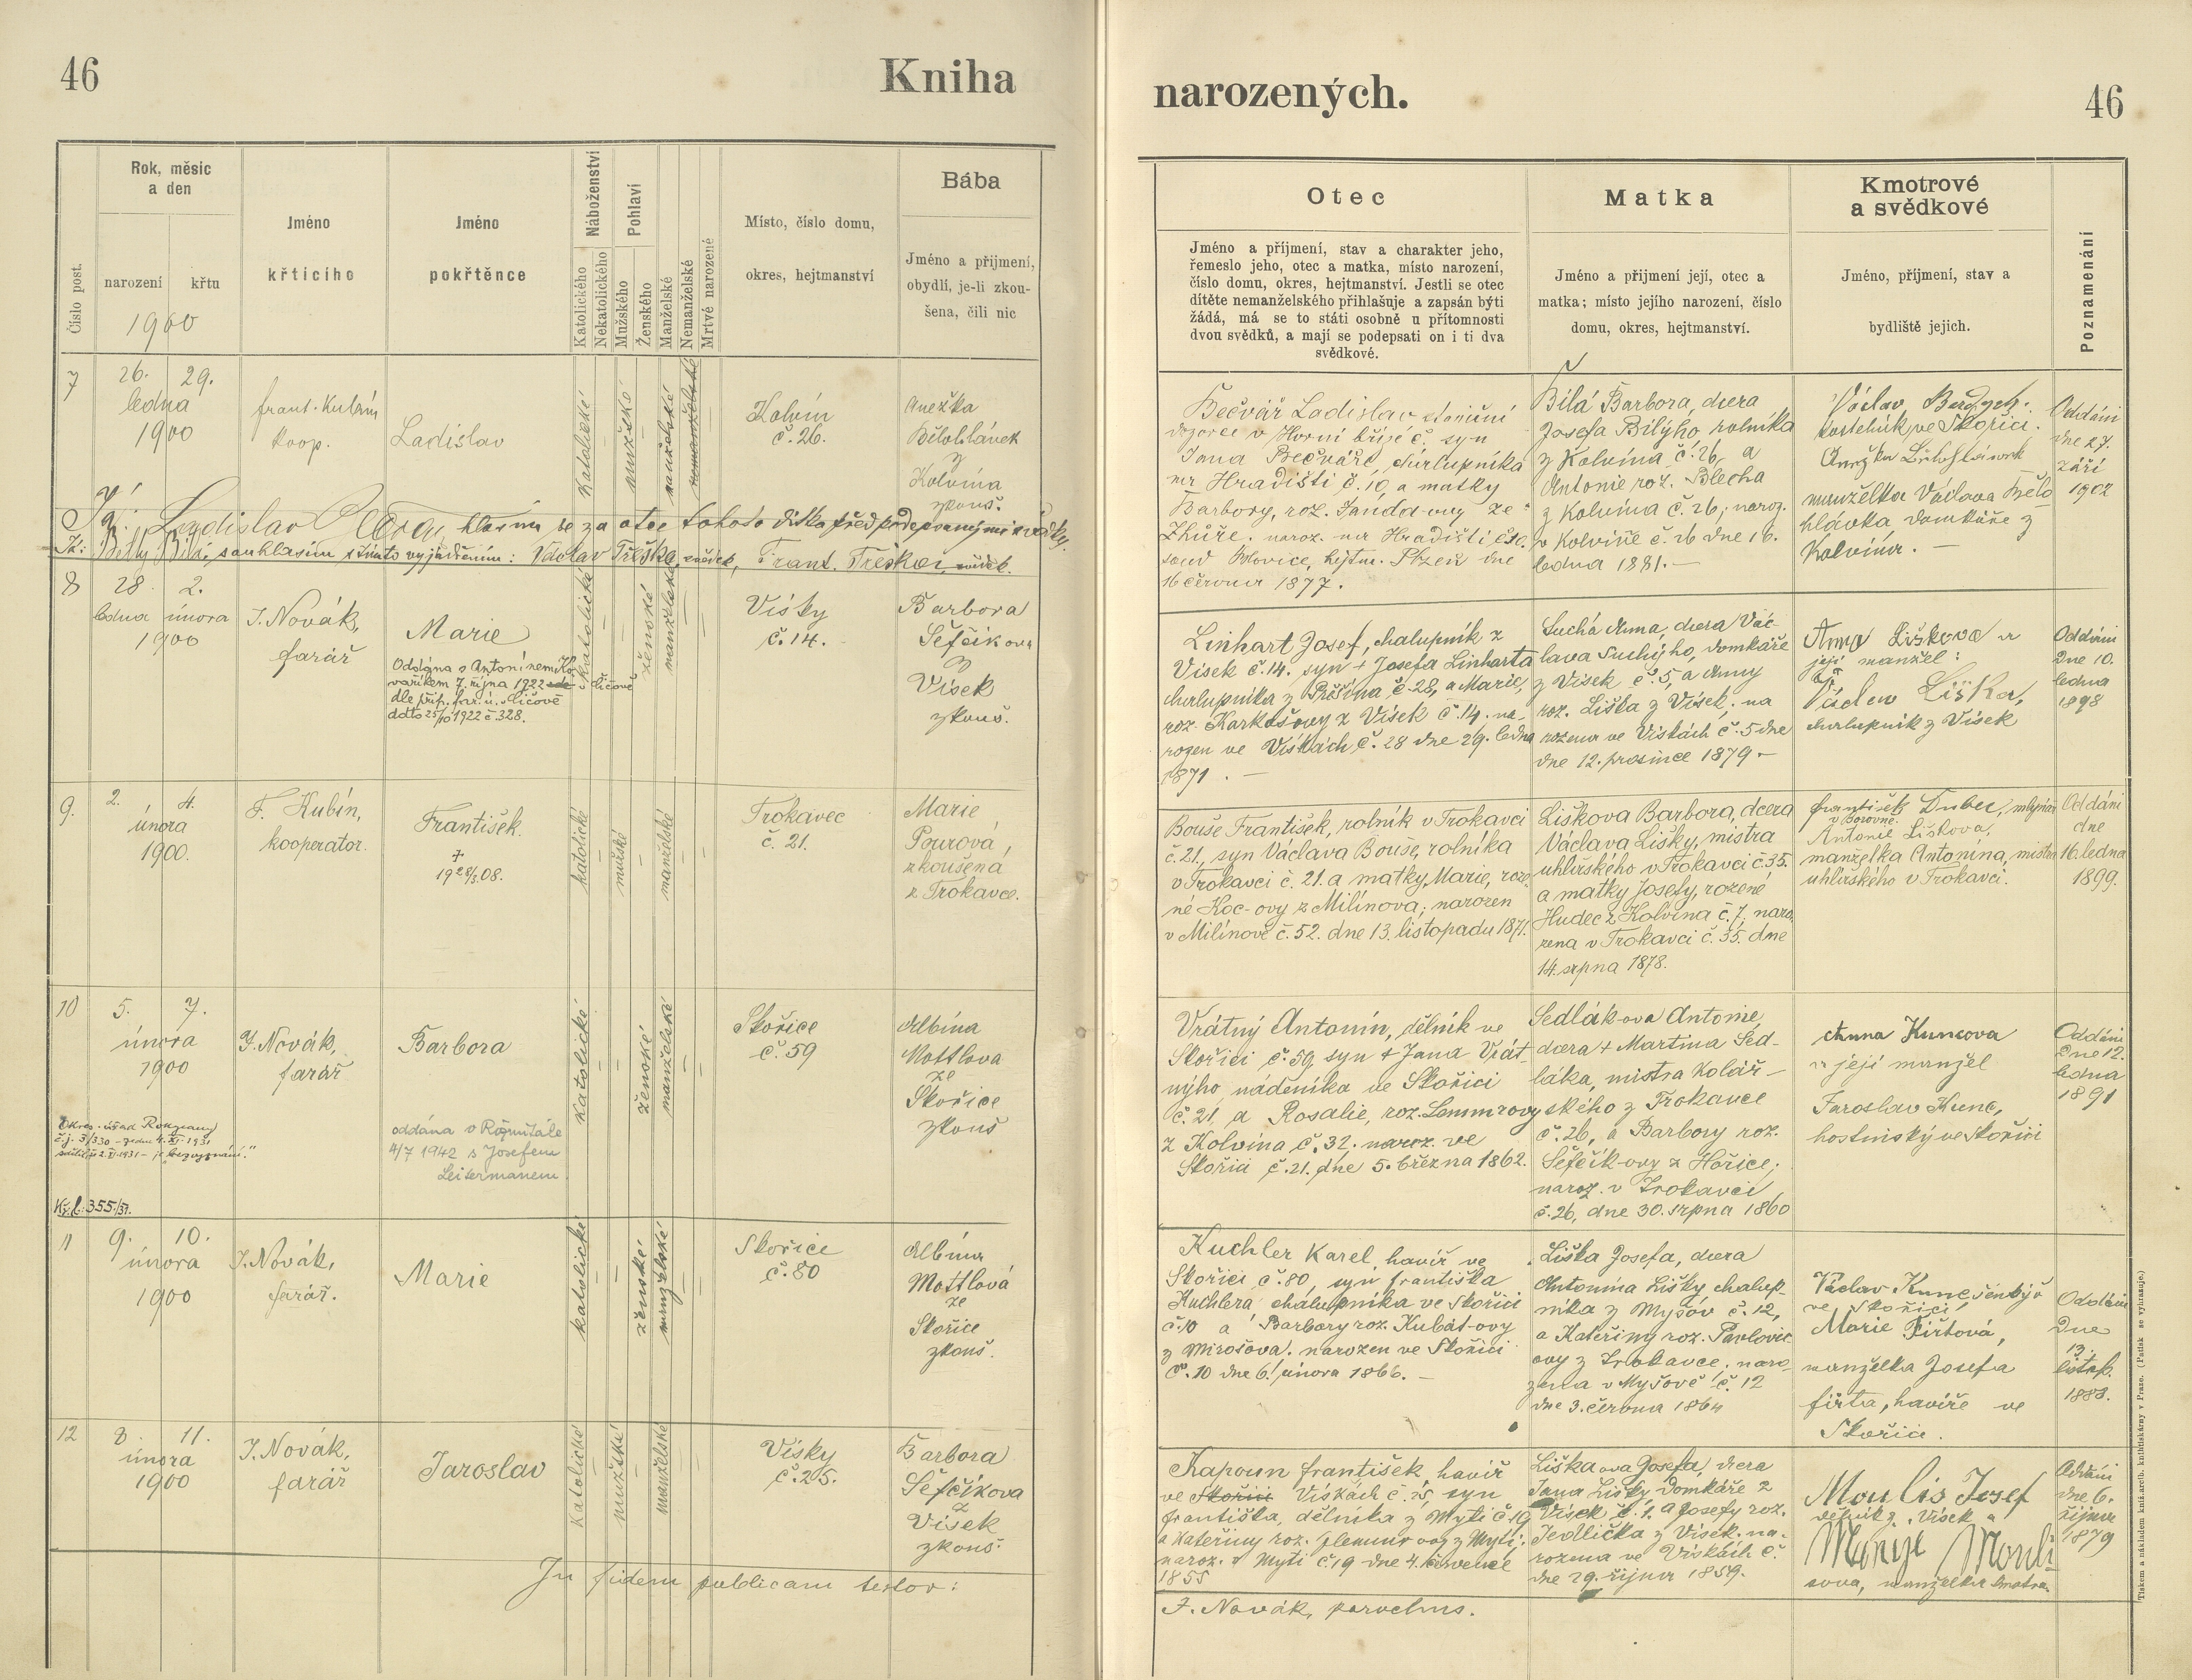 46
Kniha
narozených.
46
Číslo post.
Rok, měsíc
a den
narození
křtu
1900
Jméno
křticího
Jméno
pokřtěnce
Náboženství
Katolického
Nekatolického
Pohlaví
Mužského
Ženského
Manželské
Nemanželské
Mrtvé narozené
Místo, číslo domu,
okres, hejtmanství
Bába
Jméno a přijmení,
obydlí, je-li zkou-
šena, čili nic
Otec
Jméno a příjmení, stav a charakter jeho,
řemeslo jeho, otec a matka, místo narození,
číslo domu, okres, hejtmanství. Jestli se otec
dítěte nemanželského přihlašuje a zapsán býti
žádá, má se to státi osobně u přítomnosti
dvou svědků, a mají se podepsati on i ti dva
svědkové.
Matka
Jméno a přijmení její, otec a
matka; místo jejího narození, číslo
domu, okres, hejtmanství.
Kmotrové
a svědkové
Jméno, příjmení, stav a
bydliště jejich.
Poznamenání
7
26. 29.
ledna
1900
frant. Kubín
koop.
Ladislav
katolické
mužské
manželské
nemanželské
Kolvín
č. 26.
Anežka
Bělohlávek
z
Kolvína
zkouš.
Bečvář Ladislav
dozorce v Horní bříze č. syn
Jana Bečváře, chalupníka
na Hradišti č. 10 a matky
Barbory, roz. Šandov-ovy ze
naroz. na Hradišti č. 10.
soud Blovice, hejtm. Plzeň dne
16 června 1877.
Bílá Barbora, dcera
Josefa Bílýho, rolníka
z Kolvína č. 26, a
Antonie roz. Blecha
z Kolvína č. 26, naroz.
v Kolvíně č. 26 dne 16.
ledna 1881. —
Václav
kostelník ve Skořici.
Anežka Bělohlávek
manželka Václava Bělo
hlávka domkáře z
Kolvína. —
Oddáni
dne 27.
září
1902
Já: Ladislav hlásím se za otce tohoto dítka před podepsanými svědky.
Já: Betty Bílá, souhlasím s tímto vyjádřením: Václav Třeška, svědek, Frant. Třeška, svědek.
8
28. 2.
ledna února
1900
J. Novák,
farář
Marie
Oddána s Antonínem Ko-
vaříkem 7. října 1922
dle příp. far. ú. Sličově
ddto 25/10 1922 č. 328.
katolické
ženské
manželské
Vísky
č. 14.
Barbora
Šefčíkova
z
Vísek
zkouš.
Linhart Josef, chalupník z
Vísek č. 14. syn + Josefa Linharta
chalupníka z Příšína č. 28, a Marie,
roz. Karkošovy z Vísek č. 14. na-
rozen ve Vískách č. 28 dne 29. ledna
1871. —
Suchá Anna, dcera Vác-
lava Suchýho, domkáře
z Vísek č. 5, a Anny
roz. Liška z Vísek; na
rozena ve Vískách č. 5 dne
dne 12. prosince 1879 —
Anna Liškova a
její manžel:
Václav Liška,
chalupník z Vísek
Oddáni
Dne 10.
ledna
1898
9.
2. 4.
února
1900.
F. Kubín,
kooperator.
František.
+
19 28/3. 08.
katolické
mužské
manželské
Trokavec
č. 21.
Marie
Pourová,
zkoušená
z Trokavce.
Bouše František, rolník v Trokavci
č. 21, syn Václava Bouse, rolníka
v Trokavci č. 21. a matky Marie, roze-
né Koc-ovy z Milínova; narozen
v Milínově č. 52. dne 13. listopadu 1871.
Liškova Barbora, dcera
Václava Lišky, mistra
uhlířského v Trokavci č. 35.
a matky Josefy, rozené
Hudec z Kolvína č. 7, naro-
zena v Trokavci č. 35. dne
14. srpna 1878.
František Duber, mlynář
v Borovně.
Antonie Liškova,
manželka Antonína, mistra
uhlířského v Trokavci.
Oddáni
dne
16. ledna
1899.
10
5. 7.
února
1900
J. Novák,
farář
Barbora
oddána v Rožmitále
4/7 1942 s Josefem
Leitermanem.
Okres. úřad Rokycany
Kř. l. 355/31.
katolické
ženské
manželské
Skořice
č. 59
Albína
Mottlova
ze
Skořice
zkouš
Vrátný Antonín, dělník ve
Skořici č. 59, syn + Jana Vrát-
nýho nádeníka ve Skořici
č. 21, a Rosalie, roz. Lemmrovy
z Kolvína č. 32. naroz. ve
Skořici č. 21. dne 5. března 1862.
Sedlák-ova Antonie,
dcera + Martina Sed-
láka, mistra kolář-
ského z Trokavce
č. 26, a Barbory roz.
Šefčík-ovy z Hořice;
naroz. v Trokavci
č. 26, dne 30. srpna 1860
Anna Kuncova
a její manžel
Jaroslav Kunc,
hostinský ve Skořici
Oddáni
Dne 12.
ledna
1891
11
9. 10.
února
1900
J. Novák,
farář.
Marie
katolické
ženské
manželské
Skořice
č. 80
Albína
Mottlová
ze
Skořice
zkouš.
Kuchler Karel, havíř ve
Skořici č. 80, syn františka
Kuchlera, chalupníka ve Skořici
č. 10 a Barbory roz. Kubát-ovy
z Mirošova. narozen ve Skořici
č. 10 dne 6. února 1866. —
Liška Josefa, dcera
Antonína Lišky chalup-
níka z Myšov č. 12,
a Kateřiny roz. Pavlovic
ovy z Trokavce; naro-
zena v Myšově č. 12
dne 3. června 1864
Václav Kunc
ve Skořici
Marie Fiřtová,
manželka Josefa
fiřta, havíře ve
Skořici.
Oddáni
Dne
13.
listop.
1883.
12
8. 11.
února
1900
J. Novák,
farář
Jaroslav
katolické
mužské
manželské
Vísky
č. 25.
Barbora
Šefčíkova
z
Vísek
zkouš.
Kapoun františek, havíř
ve Skořici Vískách č. 25, syn
františka, dělníka z Mytí č. 19
a Kateřiny roz. z Mytí;
naroz. v Mytí č. 19 dne 4. července
1855
Liška ova Josefa, dcera
Jana Lišky domkáře z
Vísek č. 1, a Josefy roz.
Jedlička z Vísek. na-
rozena ve Vískách č.
dne 29. října 1859.
Moulis Josef
dělník z Vísek a
Marie Mouli
sova, manželka kmotra.
Oddáni
dne 6.
října
1879
In fidem publicam testor:
J. Novák, parochus.
Tiskem a nákladem kníž. arcib. knihtiskárny v Praze. (Patisk se vyhrazuje.)